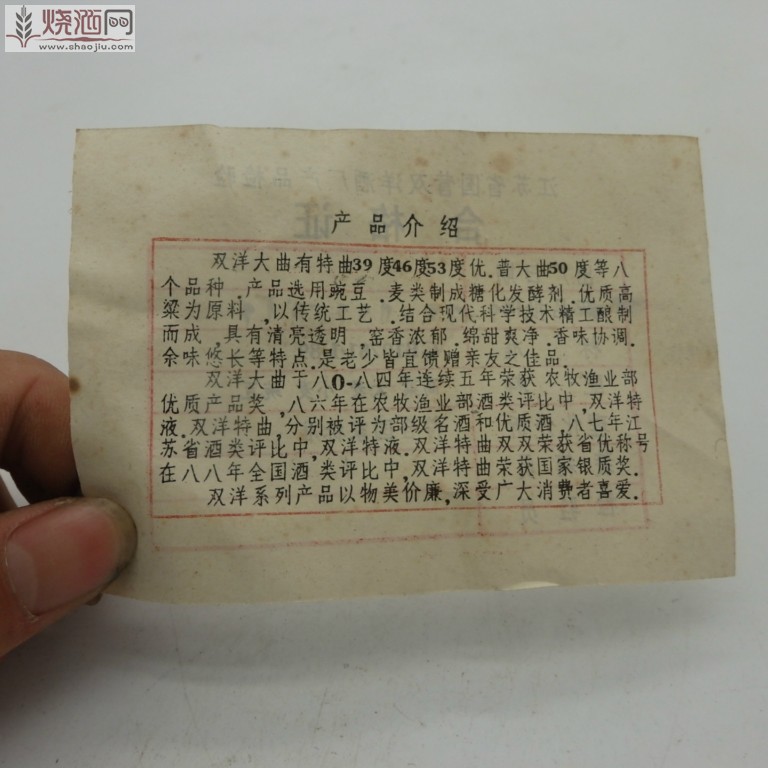 烧酒网
www.shaojiu.com
江苏省国营双洋酒厂产品检验
合格证
产品介绍
双洋大曲有特曲39度46度53度优.普大曲50度等八
个品种.产品选用豌豆.麦类制成糖化发酵剂.优质高
粱为原料,以传统工艺.结合现代科学技术精工酿制
而成,具有清亮透明,窑香浓郁.绵甜爽净.香味协调.
余味悠长等特点.是老少皆宜馈赠亲友之佳品.
双洋大曲于八0-八四年连续五年荣获农牧渔业部
优质产品奖,八六年在农牧渔业部酒类评比中,双洋特
液.双洋特曲,分别被评为部级名酒和优质酒.八七年江
苏省酒类评比中,双洋特液.双洋特曲双双荣获省优称号
在八八年全国酒类评比中,双洋特曲荣获国家银质奖.
双洋系列产品以物美价廉,深受广大消费者喜爱.